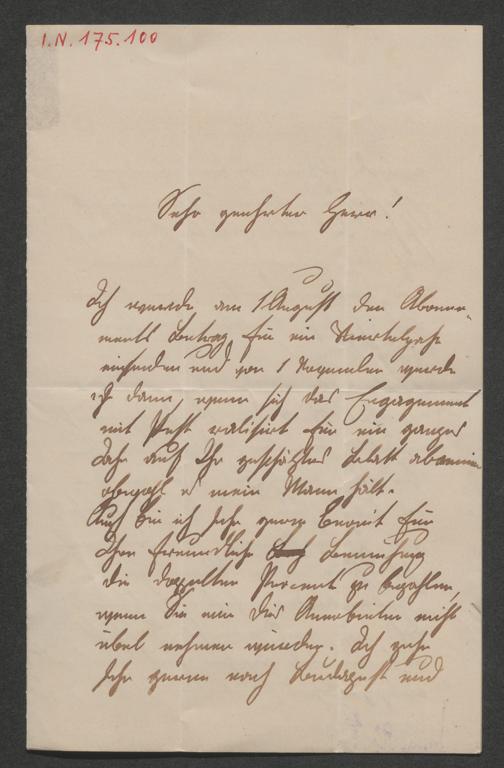 I.N. 175.100
Sehr geehrter Herr!
Ich werde am 1 August den Abonne-
ments Betrag für ein Vierteljahr
einsenden und von 1 November werde
ich dann, wenn sich das Engagement
mit Pest realisirt für ein ganzes
Jahr auf Ihr geschätztes Blatt aboniren
obwohl es mein Mann hält.
Auch bin ich sehr gerne bereit für
Ihre freundliche Bemühung
die doppelten Percente zu bezahlen,
wenn Sie mir dies Anerbieten nicht
übel nehmen würden. Ich gehe
sehr gerne nach Budapest und